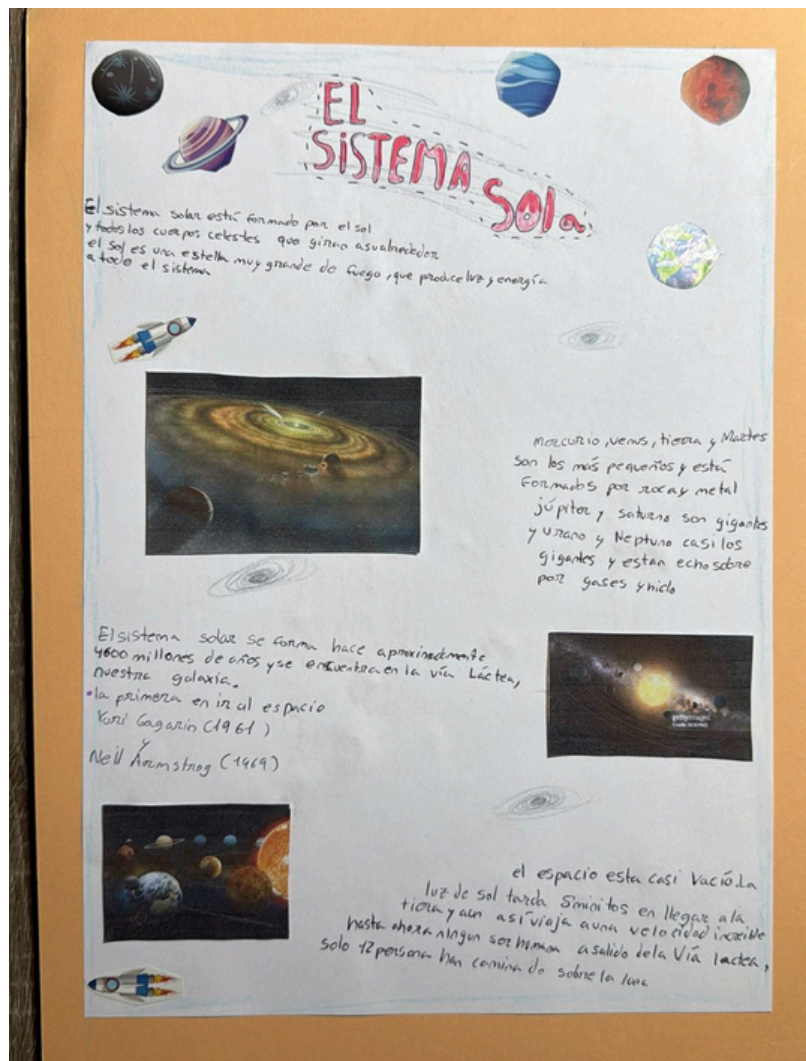 EL
SISTEMA
Sola
El sistema solar está formado por el sol
y todos los cuerpos celestes que giran asualrededor
el sol es una estella muy grande de fuego, que produce luz y energía
a todo el sistema
Mercurio, venus, tierra y Martes
son los más pequeños y está
formados por rocas y metal
júpiter y saturno son gigantes
y Urano y Neptuno casi los
gigantes y estan echo sobre
por gases y hielo
El sistema solar se forma hace aproximadamente
4600 millones de años y se encuentra en la vía Láctea,
nuestra galaxia.
• la primera en ir al espacio
Yuri Gagarin (1961)
y
Neil Armstrog (1969)
gettyimages
el espacio esta casi Vació. La
luz de sol tarda 8 minitos en llegar a la
tierra y aun así viaja a una velocidad increible
hasta ahora ningun ser humano a salido de la Vía lactea,
solo 12 persona han camina do sobre la luna